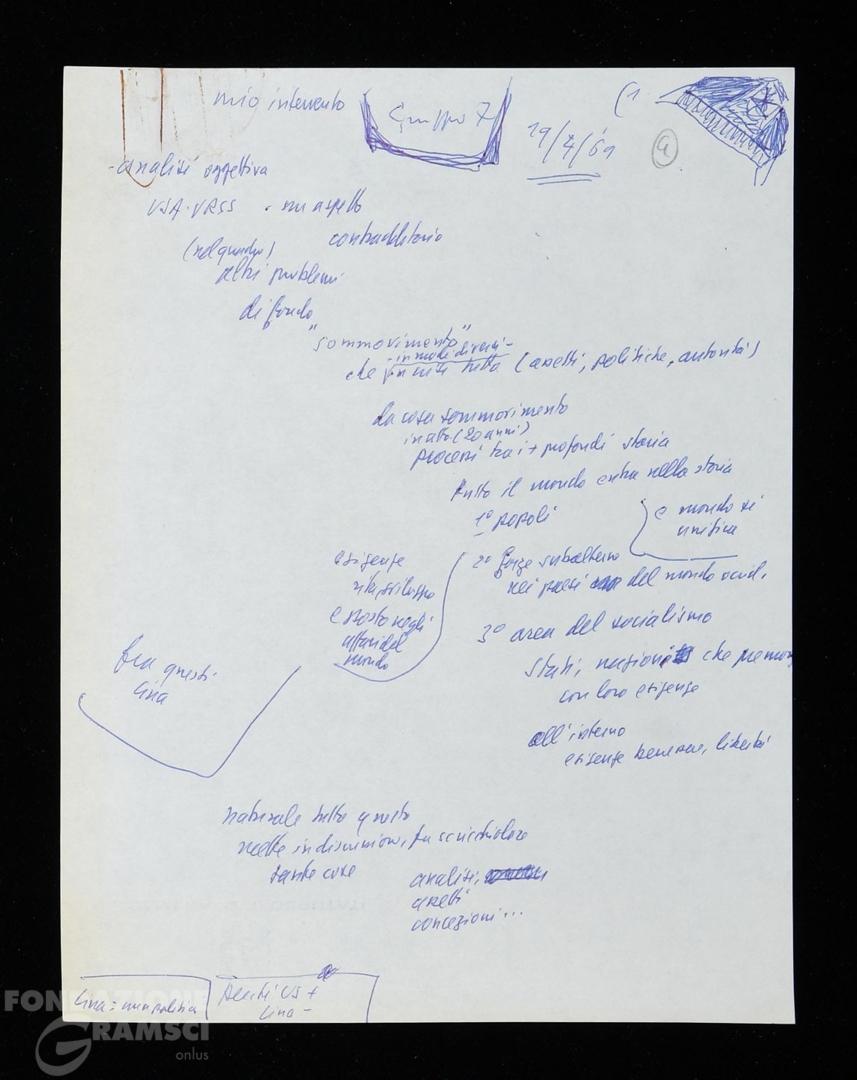 mio intervento
Gruppo 7
(1
19/4/69
a
- analisi oggettiva
USA-URSS . un aspetto
contraddittorio
(nel quadro)
altri problemi
di fondo
"sommovimento"
- in modi diversi -
che investe tutto (assetti, politiche, autorità)
da cosa sommovimento
in atto (20 anni)
processi tra i + profondi storia
tutto il mondo entra nella storia
1° popoli
e mondo si
unifica
2° forze subalterne
nei paesi del mondo occid.
esigenze
vita, sviluppo
e posto negli
affari del
mondo
3° area del socialismo
stati, nazioni che premono
con loro esigenze
fra questi
Cina
all'interno
esigenze benessere, libertà
naturale tutto questo
mette in discussione, fa scricchiolare
tante cose
analisi,
assetti
concezioni...
Cina = una politica
US +
Cina -
FONDAZIONE
GRAMSCI
onlus